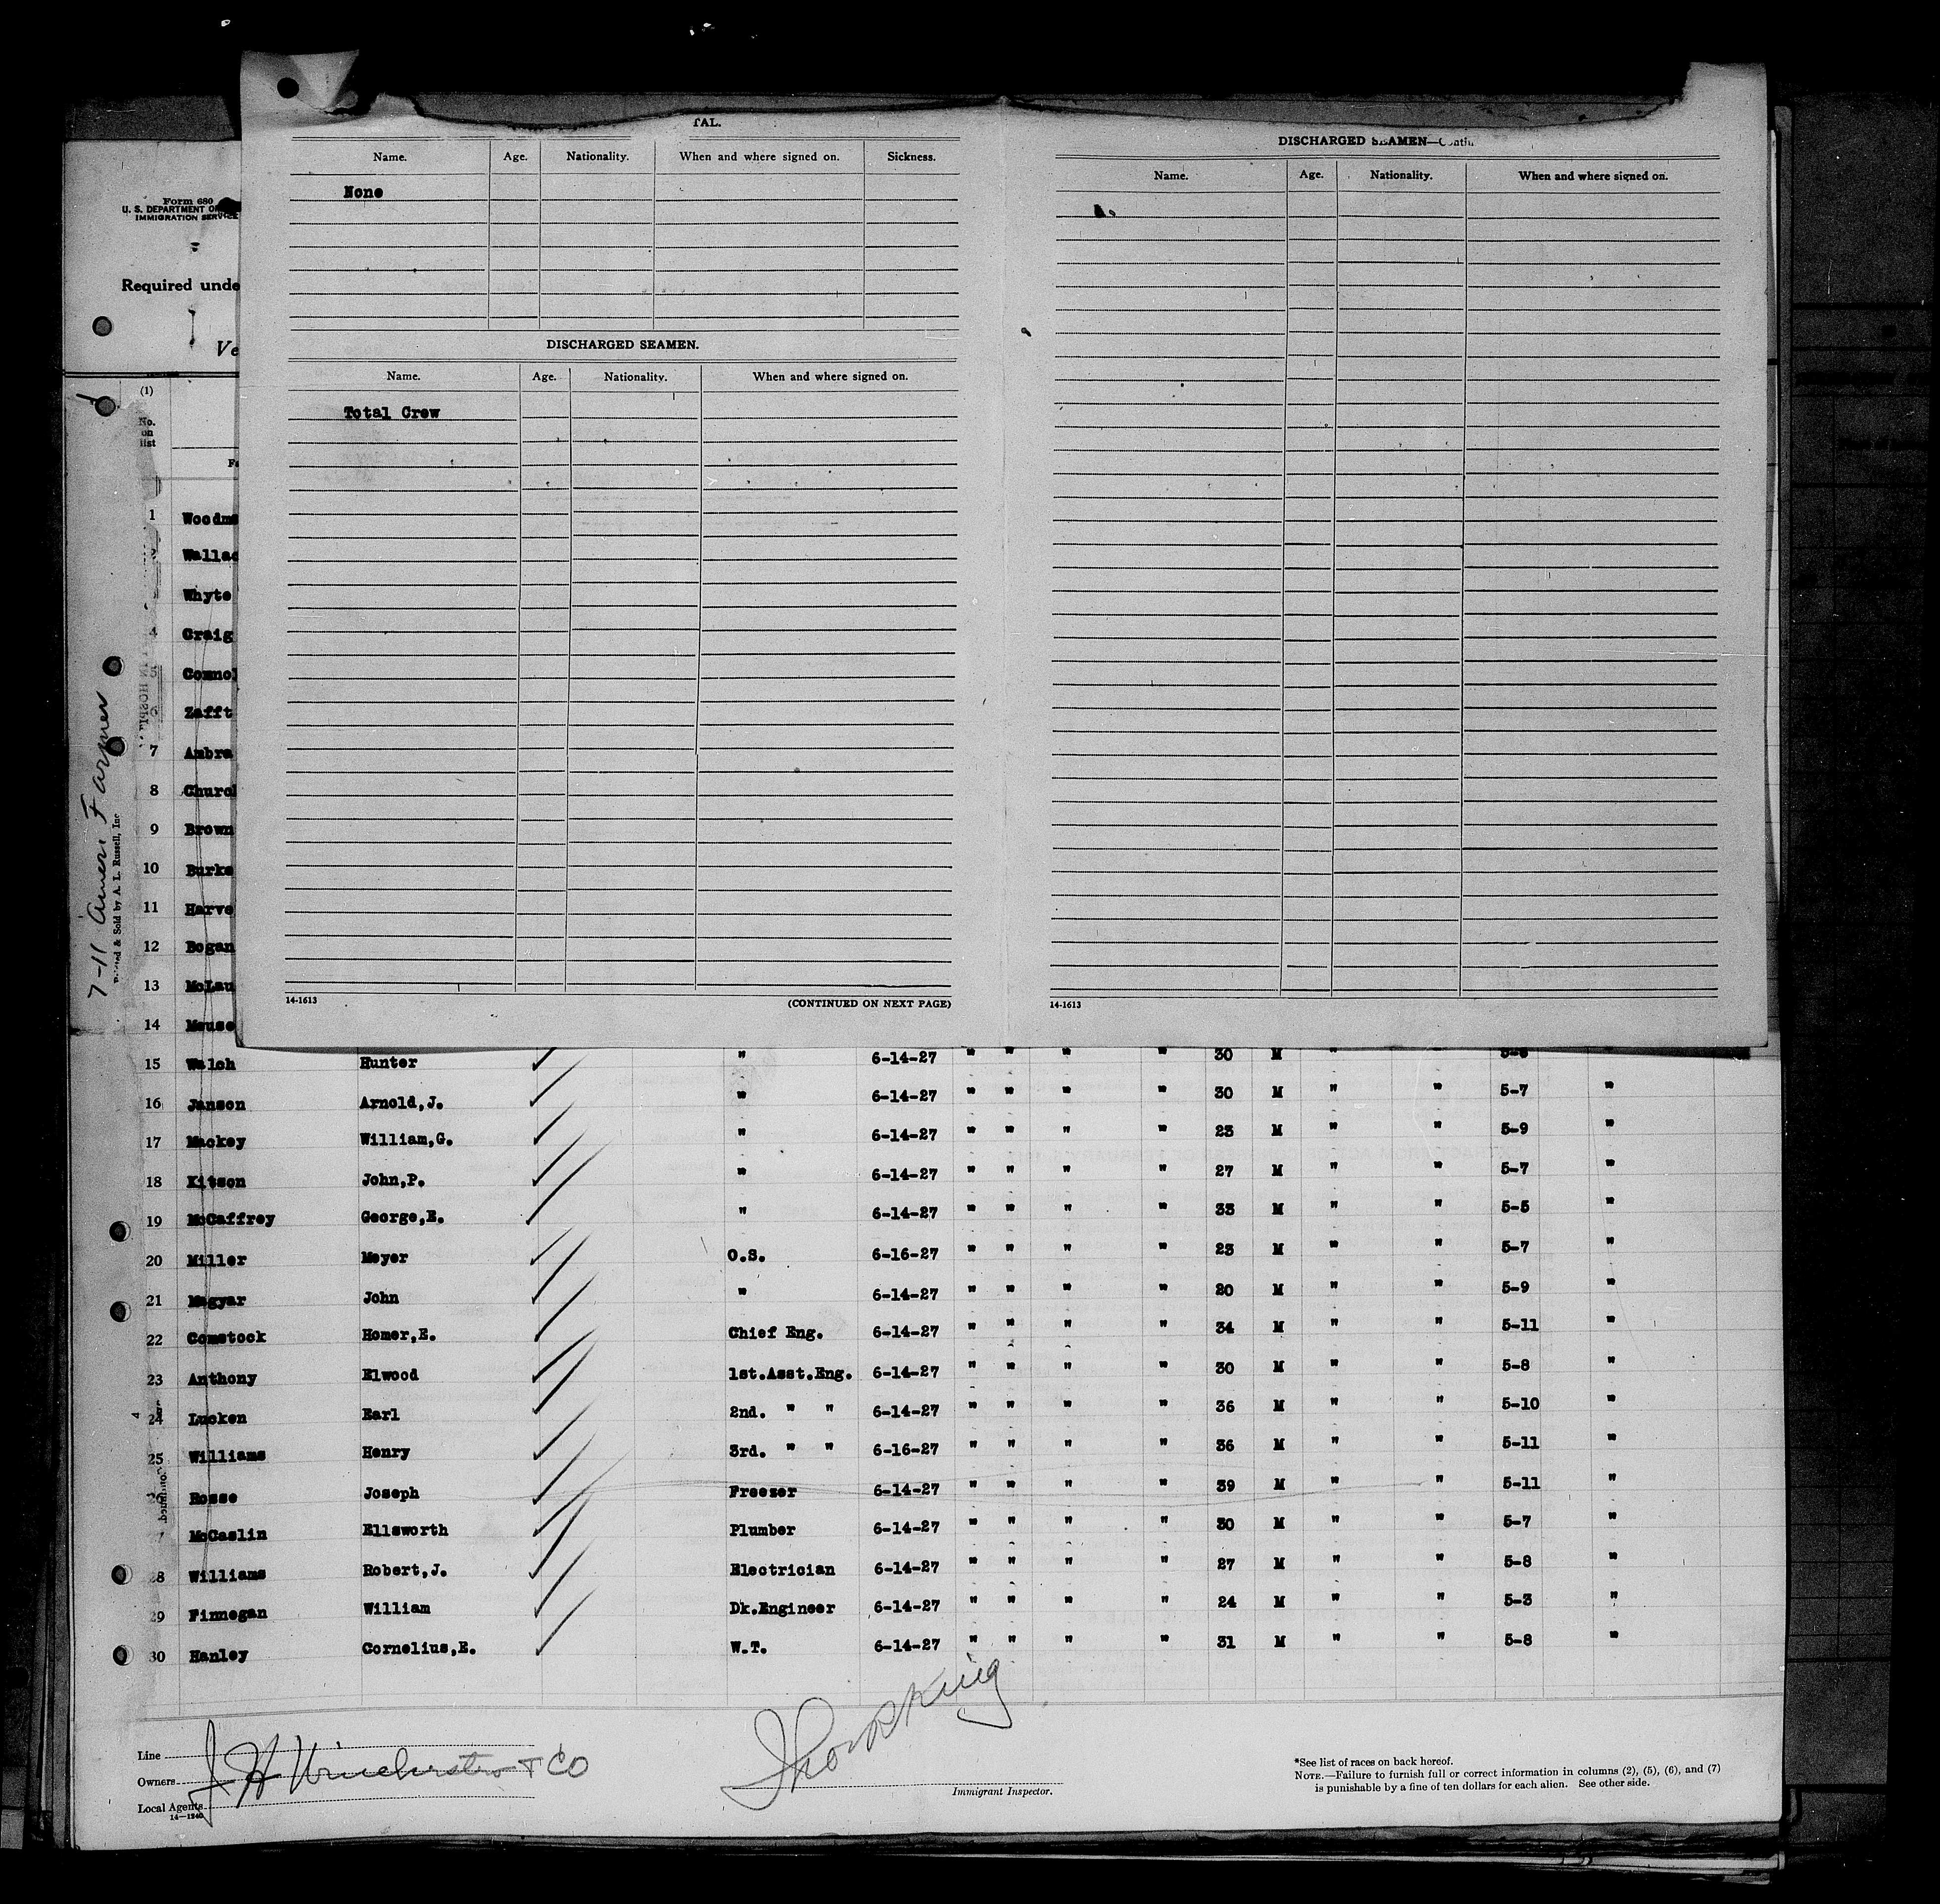 TAL.
Name. Age. Nationality. When and where signed on. Sickness.
None
DISCHARGED SEAMEN.
Name. Age. Nationality. When and where signed on.
Total Crew
14-1613 (CONTINUED ON NEXT PAGE)
DISCHARGED SEAMEN—Contin
Name. Age. Nationality. When and where signed on.
14-1613
Form 680
U. S. DEPARTMENT O
IMMIGRATION SERVICE
Required unde
Ve
(1)
No.
on
list
7-11 Ameri Farmer
& Sold by A. L. Russell, Inc
1 Woodm
2 Wallac
Whyte
4 Craig
5 Connol
6 Zafft
7 Ambro
8 Church
9 Brown
10 Burke
11 Harve
12 Bogan
13 McLau
14 Meuse
15 Walch Hunter " 6-14-27 " " " " 30 M " " 5-8 "
16 Janson Arnold,J. " 6-14-27 " " " " 30 M " " 5-7 "
17 Mackey William,G. " 6-14-27 " " " " 23 M " " 5-9 "
18 Kitson John,P. " 6-14-27 " " " " 27 M " " 5-7 "
19 McCaffrey George,E. " 6-14-27 " " " " 33 M " " 5-5 "
20 Miller Meyer O.S. 6-16-27 " " " " 23 M " " 5-7 "
21 Magyar John " 6-14-27 " " " " 20 M " " 5-9 "
22 Comstock Homer,E. Chief Eng. 6-14-27 " " " " 34 M " " 5-11 "
23 Anthony Elwood 1st.Asst.Eng. 6-14-27 " " " " 30 M " " 5-8 "
24 Lucken Earl 2nd. " " 6-14-27 " " " " 36 M " " 5-10 "
25 Williams Henry 3rd. " " 6-16-27 " " " " 36 M " " 5-11 "
26 Rosse Joseph Freezer 6-14-27 " " " " 39 M " " 5-11 "
7 McCaslin Ellsworth Plumber 6-14-27 " " " " 30 M " " 5-7 "
28 Williams Robert,J. Electrician 6-14-27 " " " " 27 M " " 5-8 "
29 Finnegan William Dk.Engineer 6-14-27 " " " " 24 M " " 5-3 "
30 Hanley Cornelius,E. W.T. 6-14-27 " " " " 31 M " " 5-8 "
Line
Owners J H Winchester & CO
Local Agents
14-1240
Immigrant Inspector.
*See list of races on back hereof.
NOTE.—Failure to furnish full or correct information in columns (2), (5), (6), and (7)
is punishable by a fine of ten dollars for each alien. See other side.